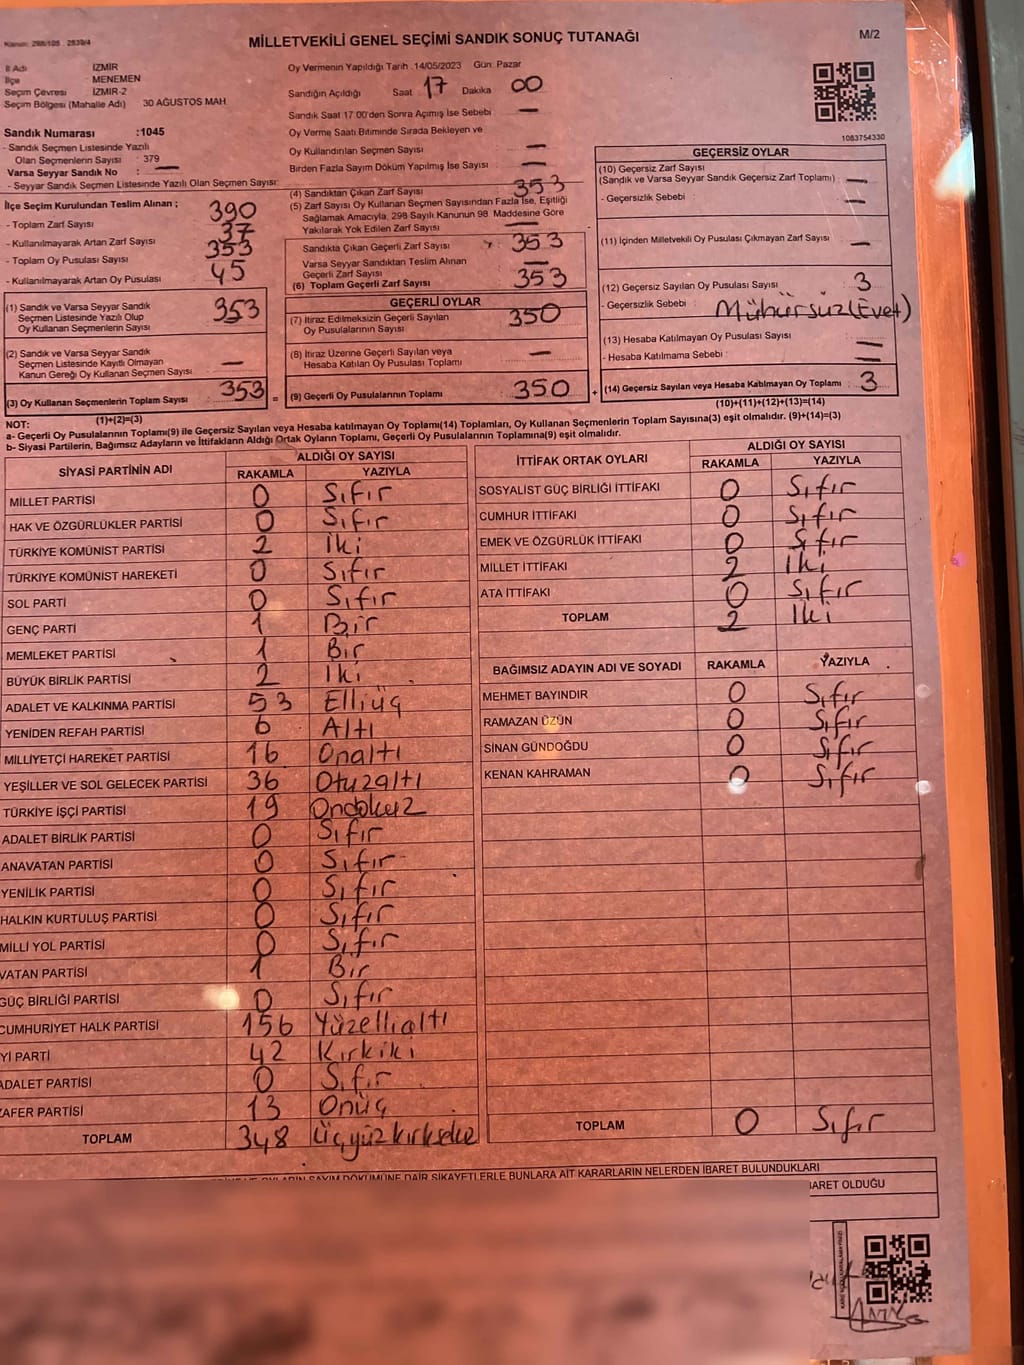 Kanun: 298/105 2839/4
MİLLETVEKİLİ GENEL SEÇİMİ SANDIK SONUÇ TUTANAĞI
M/2
İl Adı İZMİR
İlçe MENEMEN
Seçim Çevresi İZMİR-2
Seçim Bölgesi (Mahalle Adı) 30 AĞUSTOS MAH
Sandık Numarası :1045
- Sandık Seçmen Listesinde Yazılı
Olan Seçmenlerin Sayısı : 379
Varsa Seyyar Sandık No : —
- Seyyar Sandık Seçmen Listesinde Yazılı Olan Seçmen Sayısı:
İlçe Seçim Kurulundan Teslim Alınan ;
- Toplam Zarf Sayısı 390
- Kullanılmayarak Artan Zarf Sayısı 37
- Toplam Oy Pusulası Sayısı 353
- Kullanılmayarak Artan Oy Pusulası 45
(1) Sandık ve Varsa Seyyar Sandık
Seçmen Listesinde Yazılı Olup
Oy Kullanan Seçmenlerin Sayısı 353
(2) Sandık ve Varsa Seyyar Sandık
Seçmen Listesinde Kayıtlı Olmayan
Kanun Gereği Oy Kullanan Seçmen Sayısı : —
(3) Oy Kullanan Seçmenlerin Toplam Sayısı 353
(1)+(2)=(3)
Oy Vermenin Yapıldığı Tarih :14/05/2023 Gün: Pazar
Sandığın Açıldığı Saat 17 Dakika 00
Sandık Saat 17:00'den Sonra Açımış İse Sebebi : —
Oy Verme Saati Bitiminde Sırada Bekleyen ve
Oy Kullandırılan Seçmen Sayısı : —
Birden Fazla Sayım Döküm Yapılmış İse Sayısı : —
(4) Sandıktan Çıkan Zarf Sayısı 353
(5) Zarf Sayısı Oy Kullanan Seçmen Sayısından Fazla İse, Eşitliği
Sağlamak Amacıyla, 298 Sayılı Kanunun 98. Maddesine Göre
Yakılarak Yok Edilen Zarf Sayısı : —
Sandıkta Çıkan Geçerli Zarf Sayısı 353
Varsa Seyyar Sandıktan Teslim Alınan
Geçerli Zarf Sayısı —
(6) Toplam Geçerli Zarf Sayısı 353
GEÇERLİ OYLAR
(7) İtiraz Edilmeksizin Geçerli Sayılan
Oy Pusulalarının Sayısı 350
(8) İtiraz Üzerine Geçerli Sayılan veya
Hesaba Katılan Oy Pusulaları Toplamı —
= (9) Geçerli Oy Pusulalarının Toplamı 350 +
1083754330
GEÇERSİZ OYLAR
(10) Geçersiz Zarf Sayısı
(Sandık ve Varsa Seyyar Sandık Geçersiz Zarf Toplamı) : —
- Geçersizlik Sebebi : —
(11) İçinden Milletvekili Oy Pusulası Çıkmayan Zarf Sayısı : —
(12) Geçersiz Sayılan Oy Pusulası Sayısı : 3
- Geçersizlik Sebebi : Mühürsüz(Evet)
(13) Hesaba Katılmayan Oy Pusulası Sayısı : —
- Hesaba Katılmama Sebebi : —
(14) Geçersiz Sayılan veya Hesaba Katılmayan Oy Toplamı : 3
(10)+(11)+(12)+(13)=(14)
NOT:
a- Geçerli Oy Pusulalarının Toplamı(9) ile Geçersiz Sayılan veya Hesaba katılmayan Oy Toplamı(14) Toplamları, Oy Kullanan Seçmenlerin Toplam Sayısına(3) eşit olmalıdır. (9)+(14)=(3)
b- Siyasi Partilerin, Bağımsız Adayların ve İttifakların Aldığı Ortak Oyların Toplamı, Geçerli Oy Pusulalarının Toplamına(9) eşit olmalıdır.
SİYASİ PARTİNİN ADI ALDIĞI OY SAYISI
RAKAMLA YAZIYLA
MİLLET PARTİSİ 0 Sıfır
HAK VE ÖZGÜRLÜKLER PARTİSİ 0 Sıfır
TÜRKİYE KOMÜNİST PARTİSİ 2 İki
TÜRKİYE KOMÜNİST HAREKETİ 0 Sıfır
SOL PARTİ 0 Sıfır
GENÇ PARTİ 1 Bir
MEMLEKET PARTİSİ 1 Bir
BÜYÜK BİRLİK PARTİSİ 2 İki
ADALET VE KALKINMA PARTİSİ 53 Elliüç
YENİDEN REFAH PARTİSİ 6 Altı
MİLLİYETÇİ HAREKET PARTİSİ 16 Onaltı
YEŞİLLER VE SOL GELECEK PARTİSİ 36 Otuzaltı
TÜRKİYE İŞÇİ PARTİSİ 19 Ondokuz
ADALET BİRLİK PARTİSİ 0 Sıfır
ANAVATAN PARTİSİ 0 Sıfır
YENİLİK PARTİSİ 0 Sıfır
HALKIN KURTULUŞ PARTİSİ 0 Sıfır
MİLLİ YOL PARTİSİ 0 Sıfır
VATAN PARTİSİ 1 Bir
GÜÇ BİRLİĞİ PARTİSİ 0 Sıfır
CUMHURİYET HALK PARTİSİ 156 Yüzellialtı
Yİ PARTİ 42 Kırkiki
ADALET PARTİSİ 0 Sıfır
ZAFER PARTİSİ 13 Onüç
TOPLAM 348 Üçyüzkırksekiz
İTTİFAK ORTAK OYLARI ALDIĞI OY SAYISI
RAKAMLA YAZIYLA
SOSYALİST GÜÇ BİRLİĞİ İTTİFAKI 0 Sıfır
CUMHUR İTTİFAKI 0 Sıfır
EMEK VE ÖZGÜRLÜK İTTİFAKI 0 Sıfır
MİLLET İTTİFAKI 2 İki
ATA İTTİFAKI 0 Sıfır
TOPLAM 2 İki
BAĞIMSIZ ADAYIN ADI VE SOYADI RAKAMLA YAZIYLA
MEHMET BAYINDIR 0 Sıfır
RAMAZAN ÜZÜN 0 Sıfır
SİNAN GÜNDOĞDU 0 Sıfır
KENAN KAHRAMAN 0 Sıfır
TOPLAM 0 Sıfır
OYLARIN SAYIM DÖKÜMÜNE DAİR ŞİKAYETLERLE BUNLARA AİT KARARLARIN NELERDEN İBARET BULUNDUKLARI
BARET OLDUĞU